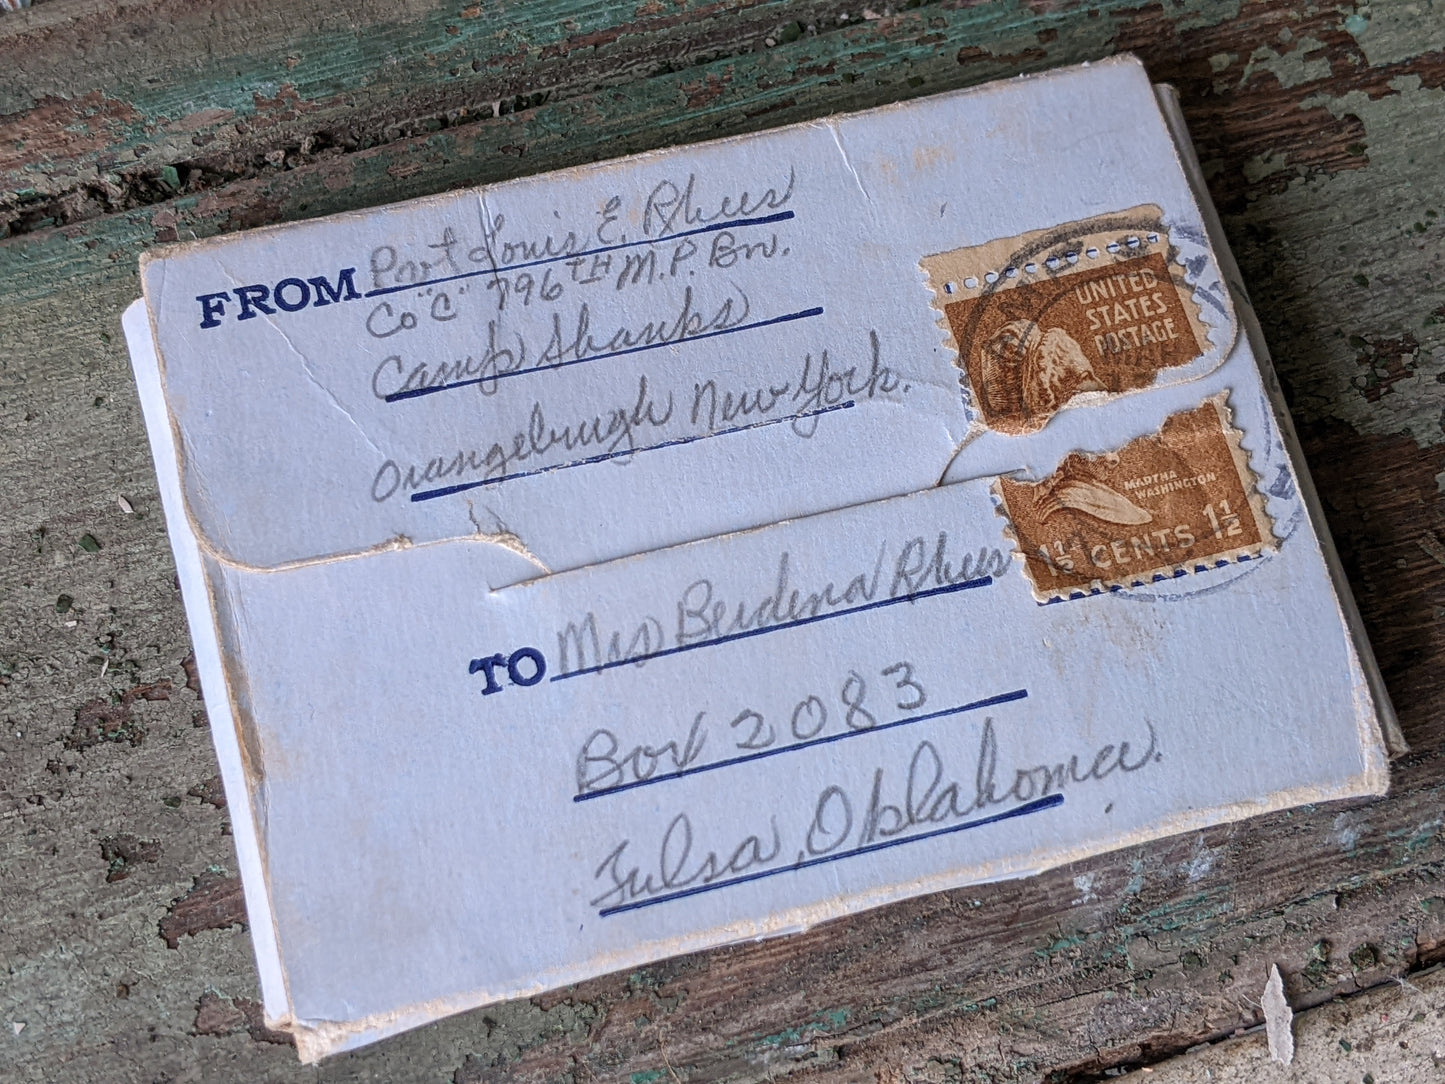 FROM Pvt Louis E. Rhees
Co "C" 796TH M.P. Bn.
Camp Shanks
Orangeburgh New York.
UNITED
STATES
POSTAGE
MARTHA
WASHINGTON
1½ CENTS 1½
TO Mrs Berdena Rhees
Box 2083
Tulsa, Oklahoma.